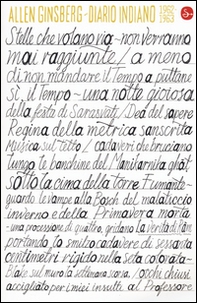 ALLEN GINSBERG - DIARIO INDIANO 1962 1963
Stelle che volano via - non verranno
mai raggiunte / a meno
di non mandare il Tempo a puttane
Sì, il Tempo - una notte gioiosa
della festa di Sarasvati / Dea del sapere
Regina della metrica sanscrita
Musica sul tetto / cadaveri che bruciano
lungo le banchine del Manikarnika ghat
sotto la cima della torre fumante -
quando le vampe alla Bosch del malaticcio
inverno e della Primavera morta
- una processione di quattro, gridano la verità di Ram
portando lo smilzo cadavere di sessanta
centimetri rigido nella seta colorata -
sul muro la settimana scorsa / occhi chiusi
accigliato per i miei insulti al Professore